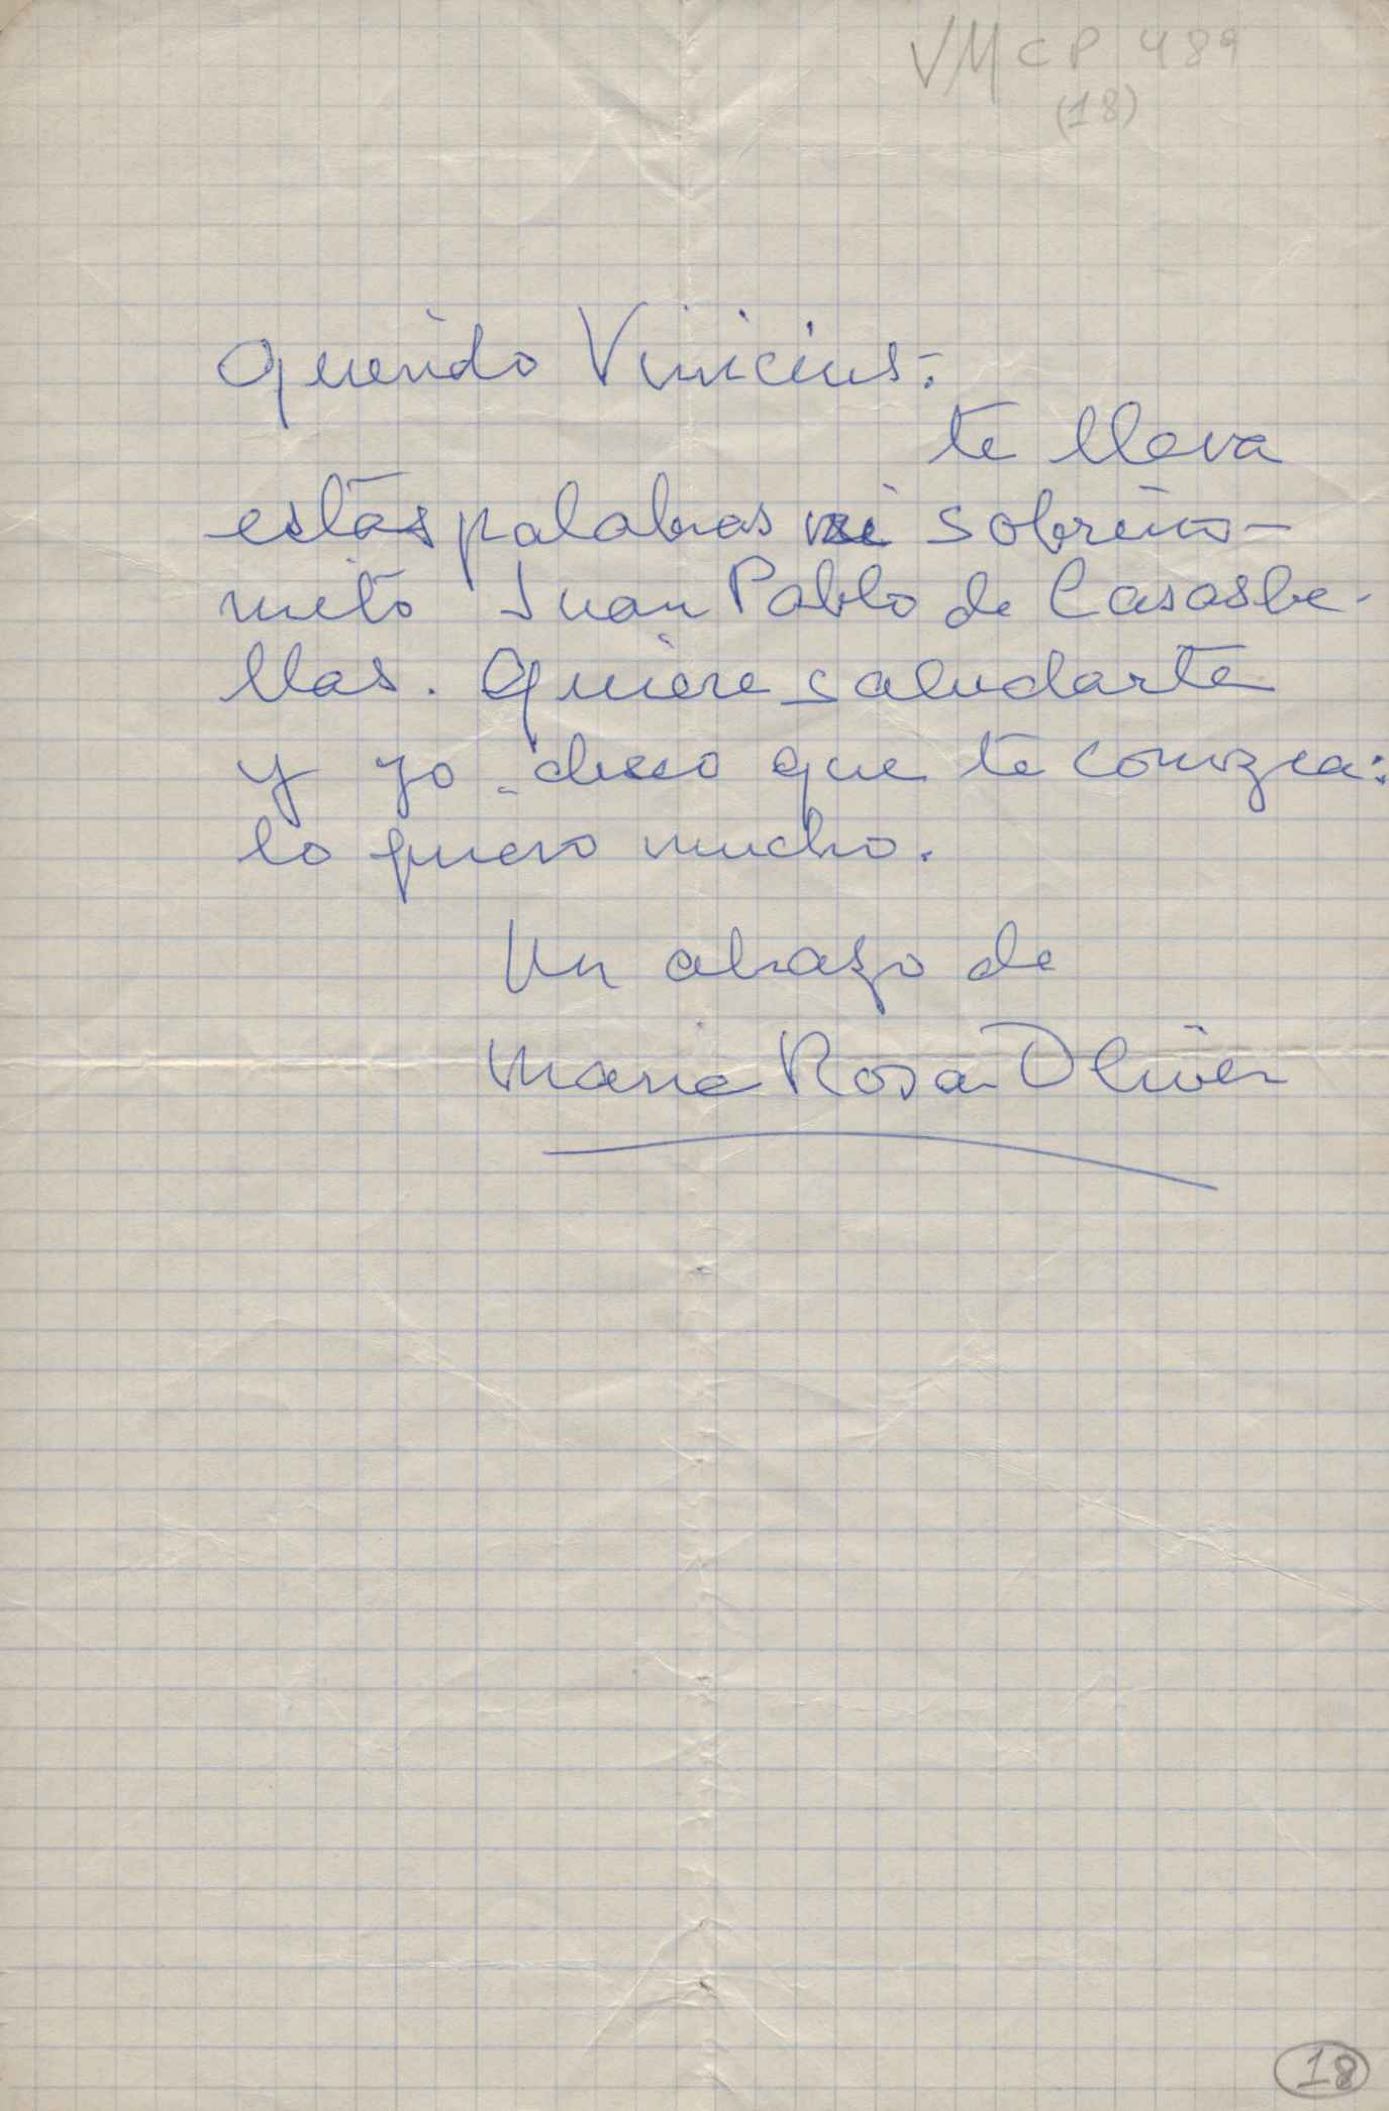 VMCP 489
(18)
Querido Vinicius:
te lleva
estas palabras mi sobrino-
nieto Juan Pablo de Casasbe-
llas. Quiere saludarte
y yo deseo que te conozca:
lo quiero mucho.
Un abrazo de
Maria Rosa Oliver
18